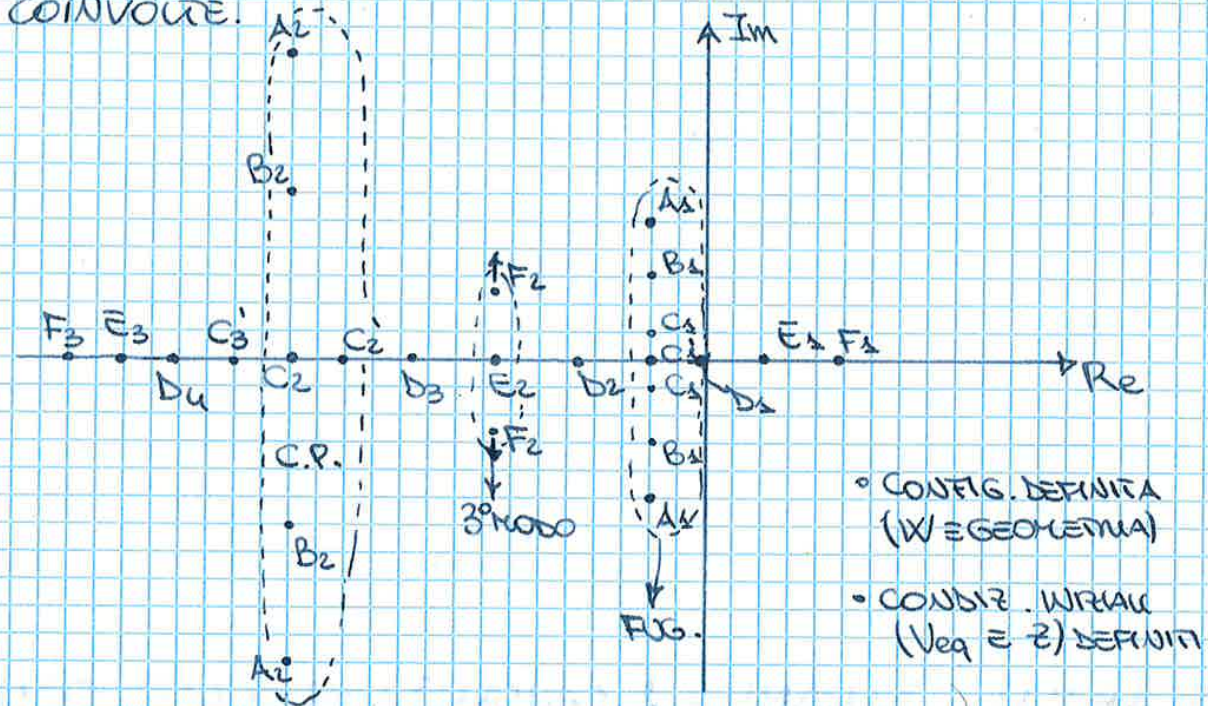 COINVOLTE.
A2
Im
B2
A1
B1
F2
C1
F3 E3 C3' C2' C1 E1 F1
D4 C2 D3 E2 D2 C1 D1 Re
C.P. F2 B1
3° MODO A1
B2
A2
FUG.
• CONFIG. DEFINITA
(W E GEOMETRIA)
• CONDIZ. INIZIALI
(Veq E Z) DEFINITI